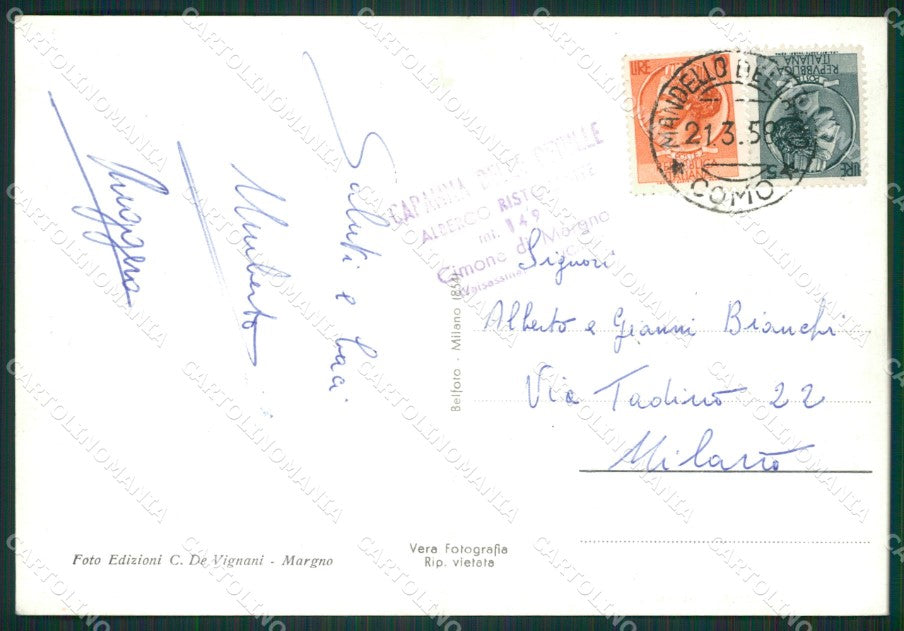 Saluti e baci
Umberto
Ruggero
CAPANNA
ALBERGO RIST
mt. 149
Cimone di Margno
Valsassina
LIRE
REPVBBLICA
ITALIANA
REPVBBLICA
ITALIANA
LIRE 5
MANDELLO DEL LARIO
21.3.59
COMO
Signori
Alberto e Gianni Bianchi
Via Tadino 22
Milano
Belfoto - Milano (854)
Vera Fotografia
Rip. vietata
Foto Edizioni C. De Vignani - Margno
CARTOLINOMANIA